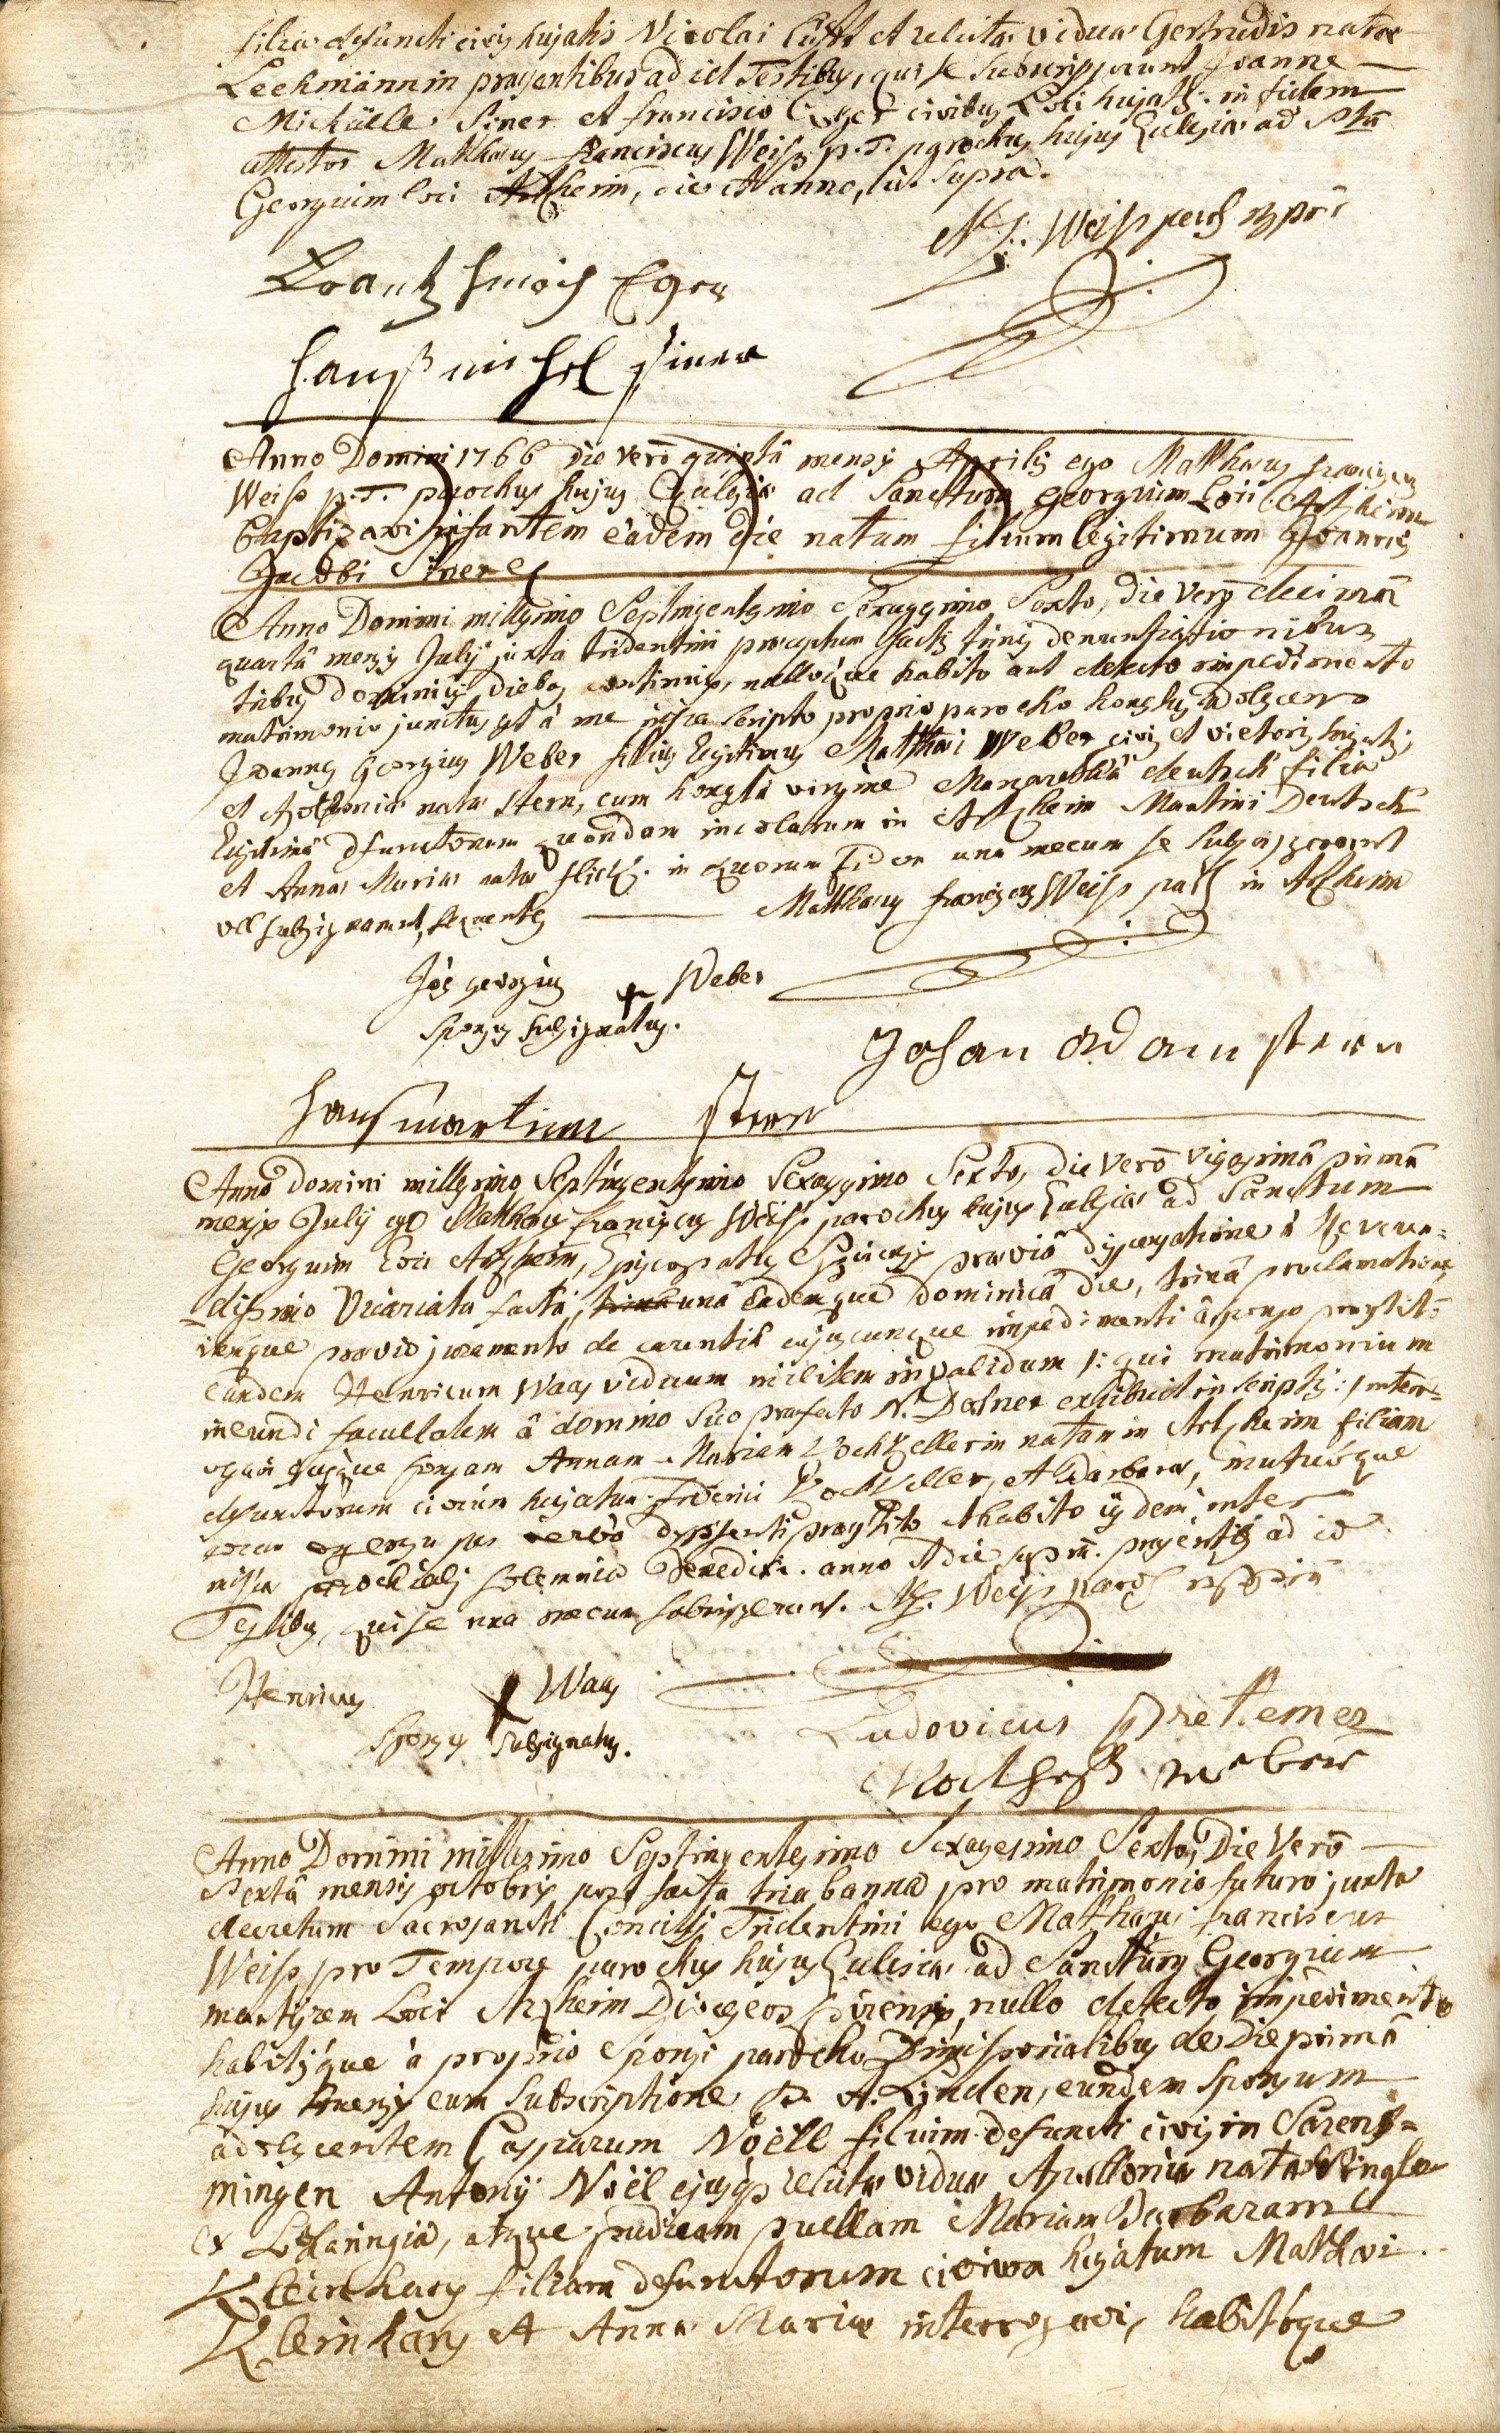 filia defuncti civis hujatis Nicolai et relicta vidua Gertrudis nata
Leckmännin praesentibus ad id Testibus, qui se subscripserunt Joanne
Michäele Siner et francisco Eger civibus Loci hujatis. in fidem
attestor Matthaeus franciscus Weiss p. T. parochus hujus Ecclesiae ad Stum
Georgium loci Artzheim, die et anno, ut supra.
M. f. Weiss parch mppri
Frantz Eger
hanß michel siner
Anno Domini 1766 die verò quintâ mensis Aprilis ego Matthaeus franciscus
Weiss p. T. parochus hujus Ecclesiae ad Sanctum georgium Loci Artzheim
baptizavi infantem eâdem die natum filium legitimum Joannis
Jacobi Siner et
Anno Domini millesimo Septingentesimo Sexagesimo Sexto, die verò decimâ
quartâ mensis Julij juxta tridentini praeceptum factis trinis denuntiationibus
tribus dominicis diebus continuis, nulloque habito aut detecto impedimento
matrimonio junctus est à me infra scripto proprio parocho honestus adolescens
Joannes Georgius Weber filius legitimus Matthaei Weber civis et vietoris hujatis,
et Apolloniae nata Stern, cum honesta virgine Margaretha deutsch filia
legitimâ defunctorum quondam incolarum in Artzheim Martini Deutsch
et Annae Mariae nata flick. in quorum fidem una mecum se subscripserunt
vel subsignarunt, sequentes Matthaeus franciscus Weiss parch in Artzheim
Jôes georgius + Weber
Sponsus subsignatus.
Johan adam stern
hans martin stern
Anno Domini millesimo Septingentesimo Sexagesimo Sexto, die verò vigesimâ primâ
mensis Julij ego Matthaeus franciscus Weiss parochus hujus Ecclesiae ad Sanctum
Georgium Loci Artzheim, Episcopatus Spirensis praeviâ dispensatione à Reveren=
dissimo Vicariatu factâ, trinâ unâ eâdemque dominicâ die, trinâ proclamatione,
itemque praevio juramento de carentia cujuscunque impedimenti à sponso praestito
eundem Henricum Waas viduum militem invalidum /: qui matrimonium
ineundi facultatem â domino suo praefecto N. exhibuit in scriptis :/ inter=
ogavi ejusque sponsam Annam Mariam natam in Artzheim filiam
defunctorum civium hujatum friderici et Barbarae, mutuoque
eorum consensu per verba de praesenti praestito et habito iisdem inter
missa parochiali solemnia benedixi. anno et die supra. praesentibus ad id
Testibus, qui se una mecum subscripserunt. M. f. Weiss parch mppriâ
Henricus + Waas
Sponsus subsignatus.
Ludovicus Prettemer
weber
Anno Domini millesimo Septingentesimo Sexagesimo Sexto, Die Verò
Sextâ mensis octobris post facta tria banna pro matrimonio futuro juxta
decretum Sacrosancti Concilij Tridentini ego Matthaeus franciscus
Weiss pro Tempore parochus hujus Ecclesiae ad Sanctum Georgium
martyrem Loci Artzheim Dioeceseos Spirensis, nullo detecto impedimento
habitisque à proprio Sponsi parocho Dimissorialibus de Die primâ
hujus mensis cum subscriptione P. A. Linden, eundem sponsum
adolescentem Casparum Nöëll filium defuncti civis in Sarens=
mingen Antonij Nöël ejusque relictae viduae Apolloniae nata Ringle
ex Lotharingia, atque pudicam puellam Mariam Barbaram
Kleinhans filiam defunctorum civium hujatum Matthaei
Kleinhans et Annae Mariae interrogavi, habitoque